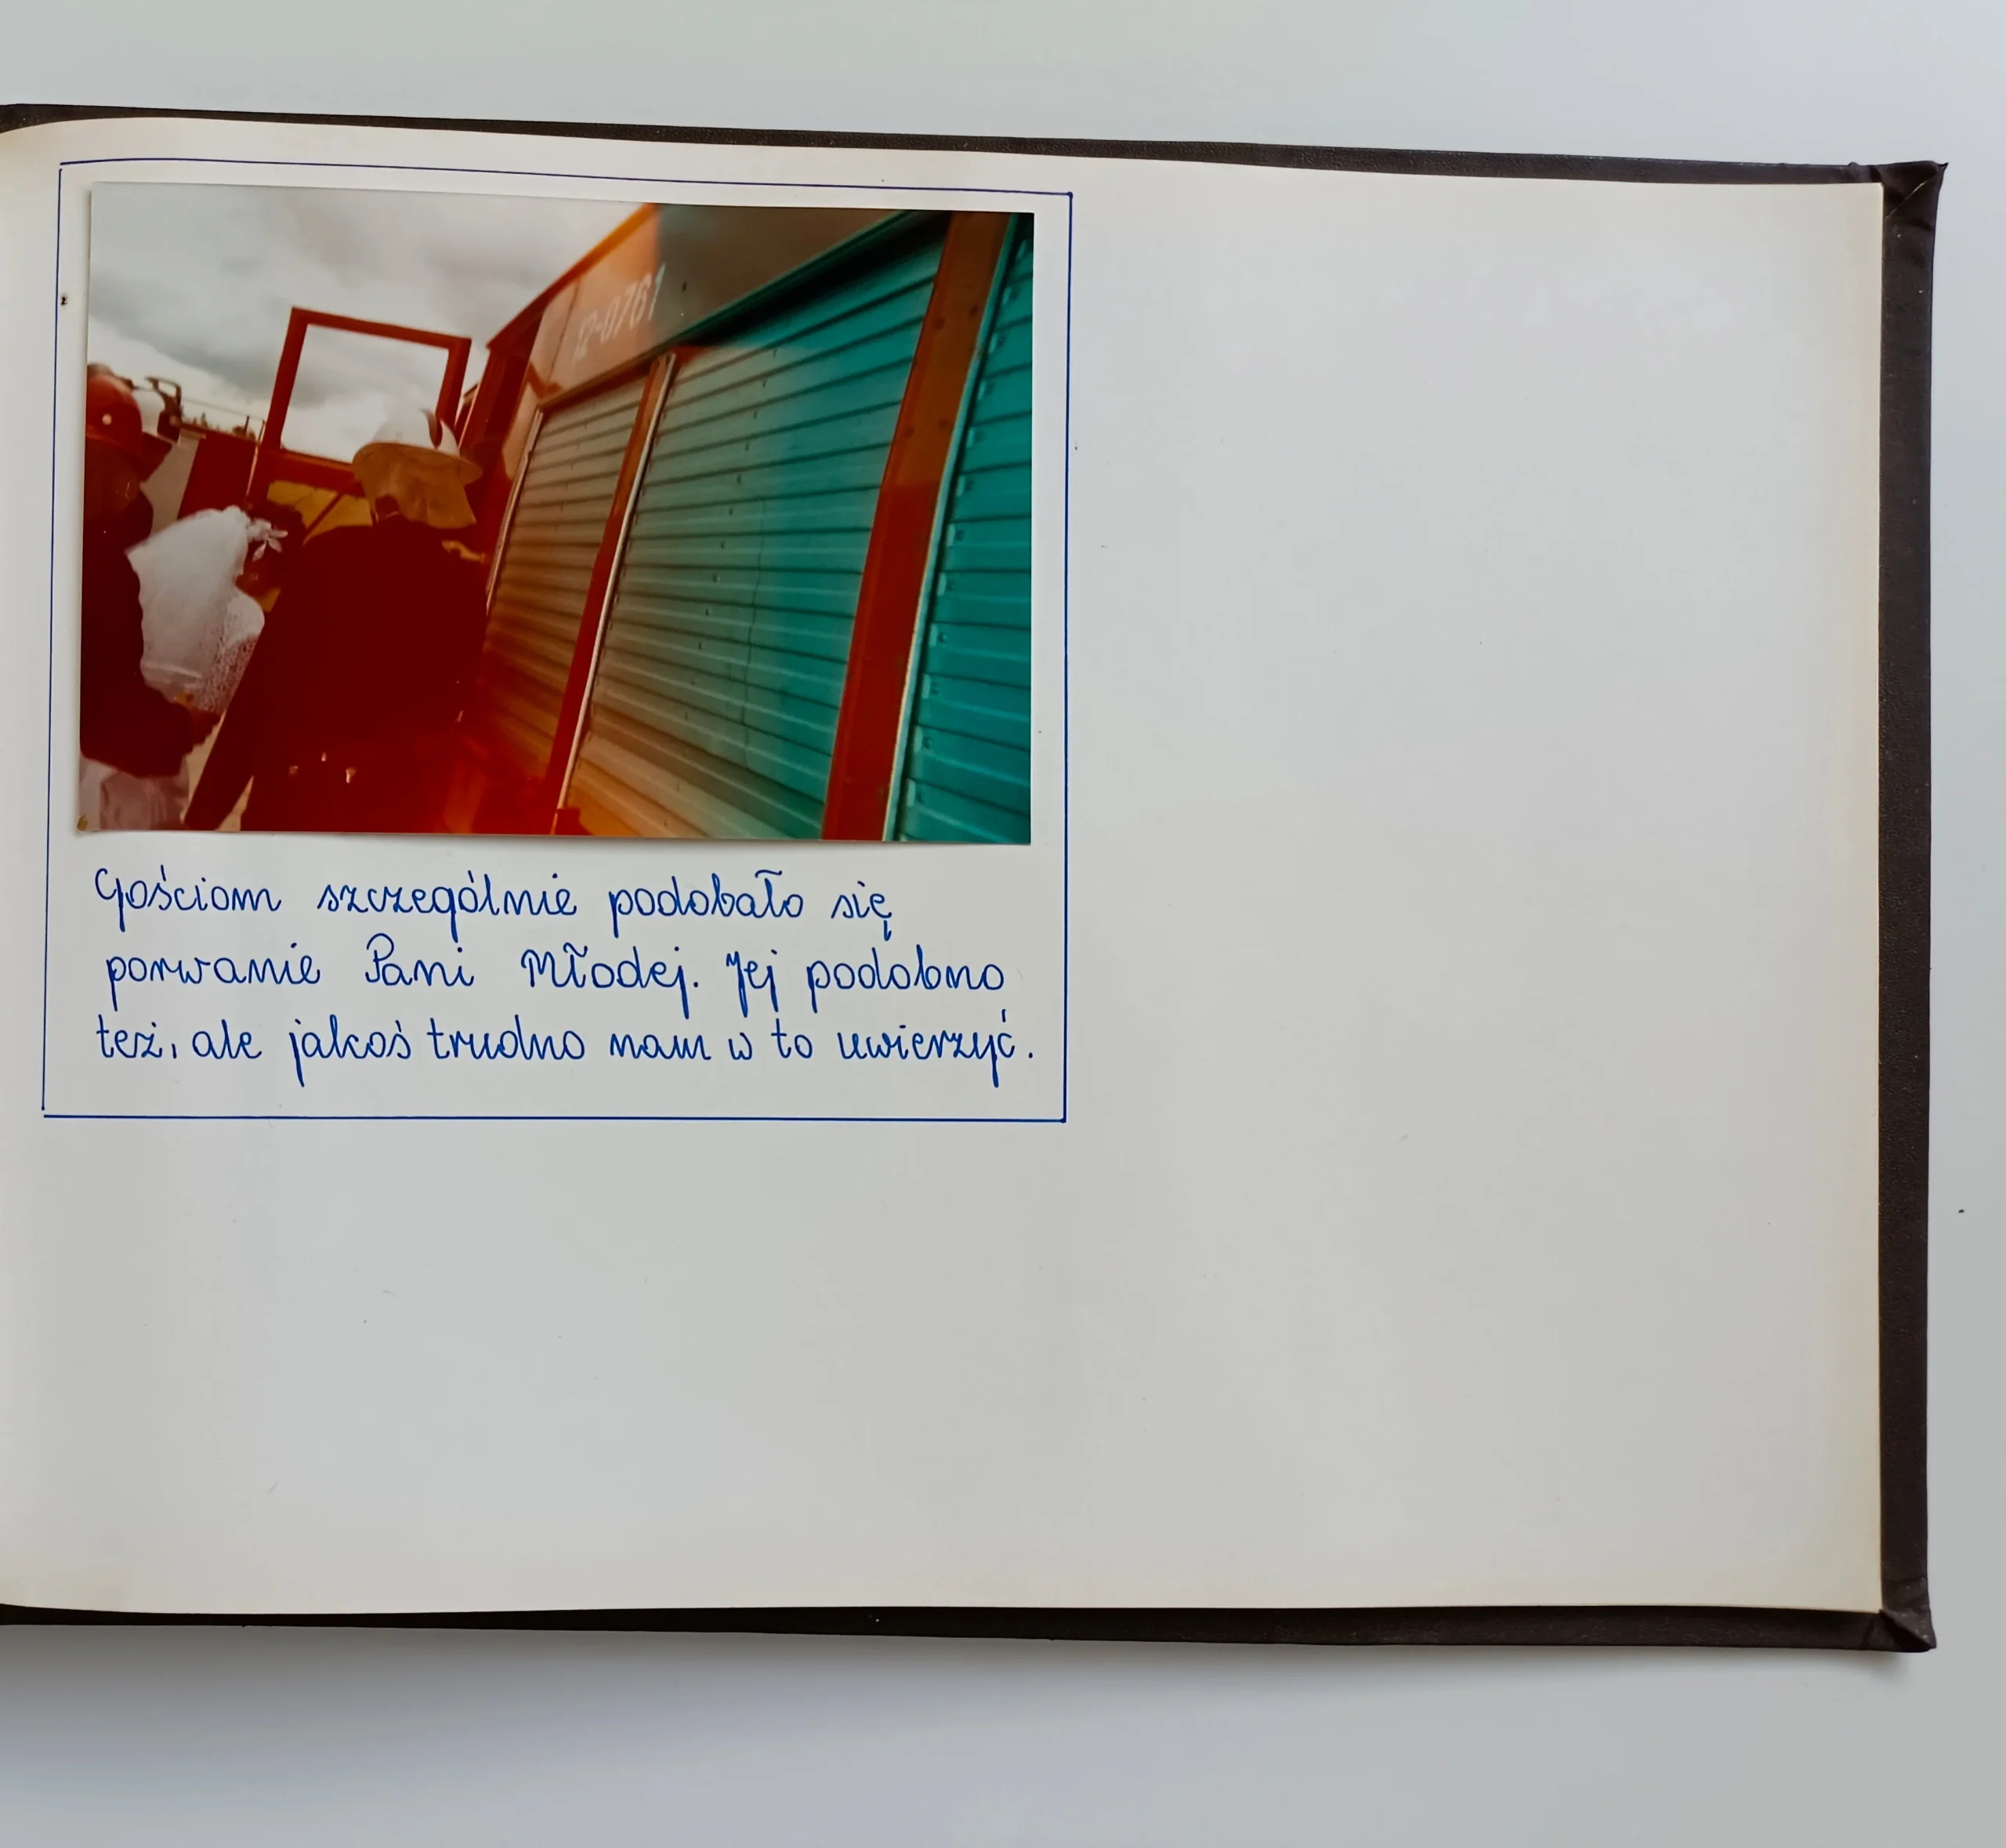 12-0761
Gościom szczególnie podobało się
porwanie Pani Młodej. Jej podobno
też, ale jakoś trudno nam w to uwierzyć.